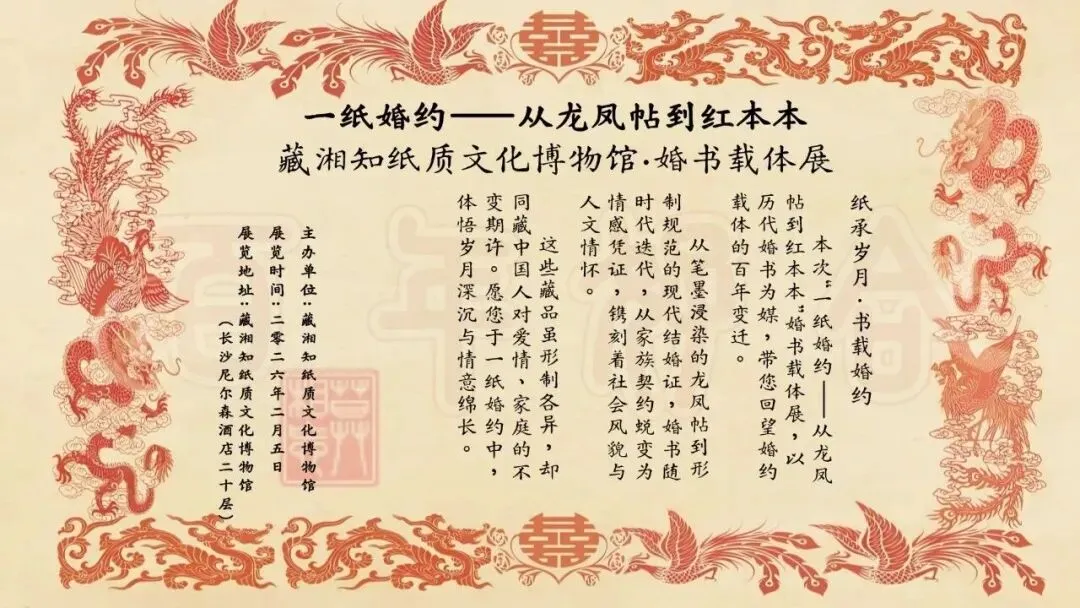 一纸婚约——从龙凤帖到红本本
藏湘知纸质文化博物馆·婚书载体展
纸承岁月·书载婚约
本次“一纸婚约——从龙凤
帖到红本本”婚书载体展,以
历代婚书为媒,带您回望婚约
载体的百年变迁。
从笔墨浸染的龙凤帖到形
制规范的现代结婚证,婚书随
时代迭代,从家族契约蜕变为
情感凭证,镌刻着社会风貌与
人文情怀。
这些藏品虽形制各异,却
同藏中国人对爱情、家庭的不
变期许。愿您于一纸婚约中,
体悟岁月深沉与情意绵长。
主办单位:藏湘知纸质文化博物馆
展览时间:二零二六年二月五日
展览地址:藏湘知纸质文化博物馆
(长沙尼尔森酒店二十层)
囍
囍